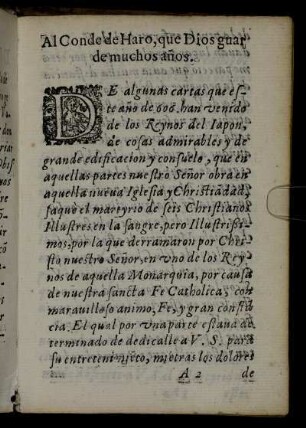 Al Conde de Haro, que Dios guar
de muchos años.
DE algunas cartas que es-
te año de 606. han venido
de los Reynos del Iapon,
de cosas admirables y de
grande edificacion y consuelo, que en
aquellas partes nuestro Señor obra en
aquella nueua Iglesia y Christiãdad,
saquè el martyrio de seis Christianos
Illustres en la sangre, pero Illustrissi-
mos, por la que derramaron por Chri
sto nuestro Señor, en vno de los Rey-
nos de aquella Monarquia, por causa
de nuestra sancta Fè Catholica, con
marauilloso animo, Fè, y gran consta
cia. El qual por vna parte estaua de
terminado de dedicalle a V. S. para
su entretenimiẽto, miẽtras los dolores
A 2 de